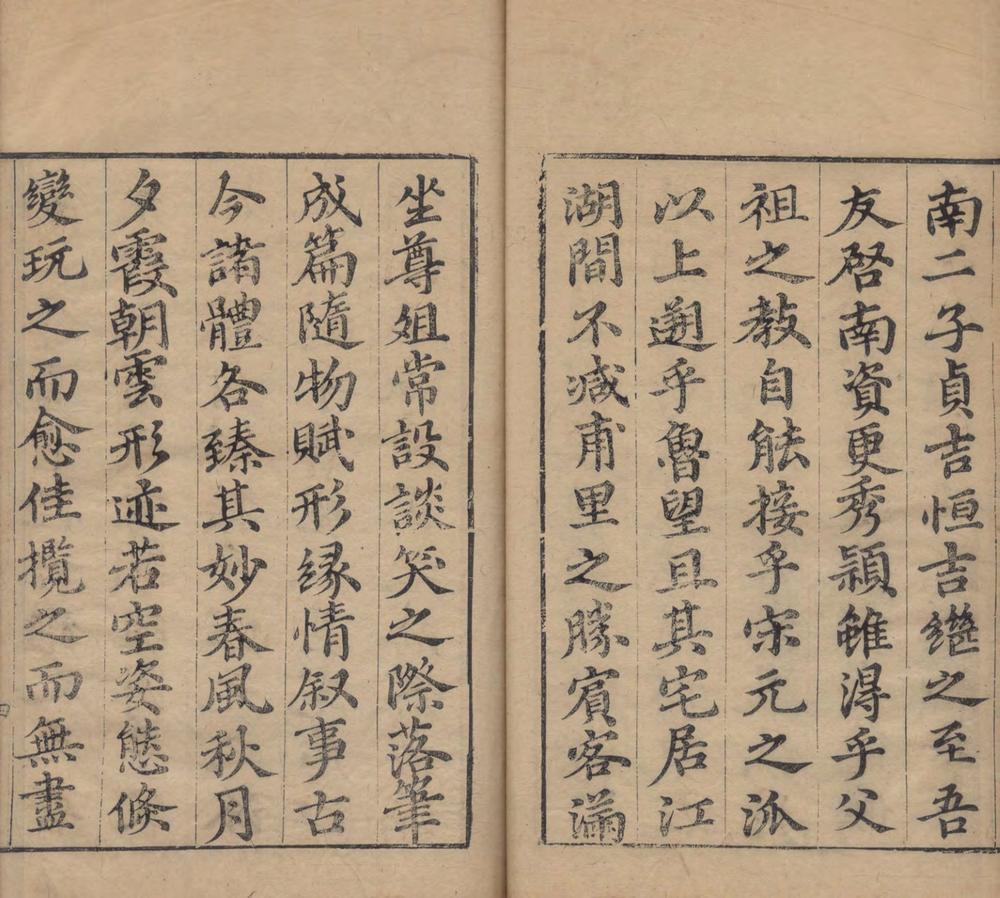 南二子貞吉恒吉繼之至吾
友啓南資更秀穎雖得乎父
祖之教自能接乎宋元之派
以上遡乎魯望且其宅居江
湖間不减甫里之勝賓客滿
坐尊俎常設談笑之際落筆
成篇隨物賦形緣情叙事古
今諸體各臻其妙春風秋月
夕霞朝雲形迹若空姿態倐
變玩之而愈佳攬之而無盡